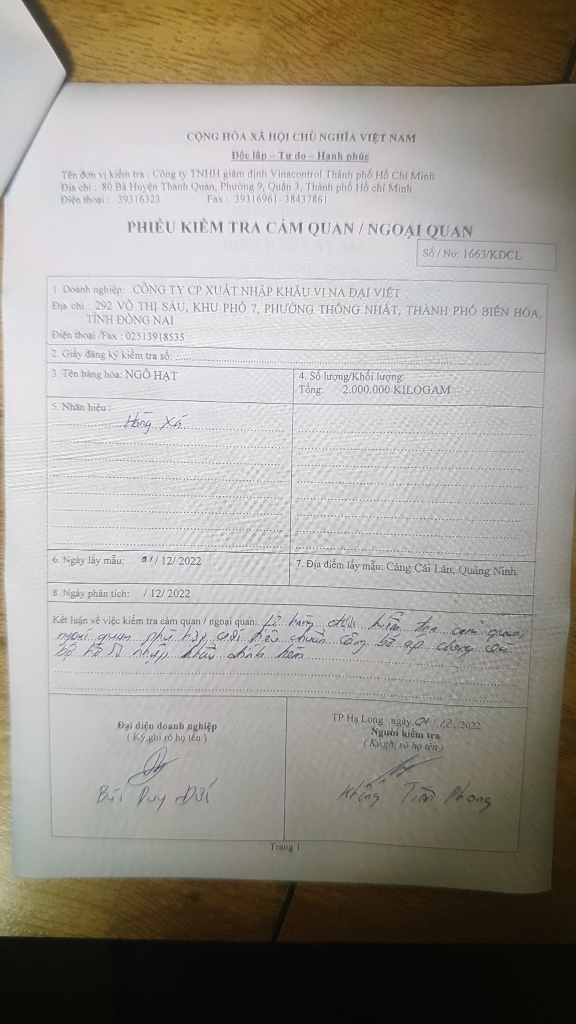 CỘNG HÒA XÃ HỘI CHỦ NGHĨA VIỆT NAM
Độc lập – Tự do – Hạnh phúc
Tên đơn vị kiểm tra : Công ty TNHH giám định Vinacontrol Thành phố Hồ Chí Minh
Địa chỉ : 80 Bà Huyện Thanh Quan, Phường 9, Quận 3, Thành phố Hồ chí Minh
Điện thoại : 39316323 Fax : 39316961- 38437861
PHIẾU KIỂM TRA CẢM QUAN / NGOẠI QUAN
Số / No: 1663/KDCL
1. Doanh nghiệp: CÔNG TY CP XUẤT NHẬP KHẨU VI NA ĐẠI VIỆT
Địa chỉ : 292 VÕ THỊ SÁU, KHU PHỐ 7, PHƯỜNG THỐNG NHẤT, THÀNH PHỐ BIÊN HÒA,
TỈNH ĐỒNG NAI
Điện thoại /Fax : 02513918535
2. Giấy đăng ký kiểm tra số:
3. Tên hàng hóa: NGÔ HẠT
4. Số lượng/Khối lượng:
Tổng: 2.000.000 KILOGAM
5. Nhãn hiệu :
Hàng Xá
6. Ngày lấy mẫu: 01/ 12/ 2022
7. Địa điểm lấy mẫu: Cảng Cái Lân, Quảng Ninh.
8. Ngày phân tích: / 12/ 2022
Kết luận về việc kiểm tra cảm quan / ngoại quan: Lô hàng được kiểm tra cảm quan,
ngoại quan phù hợp với tiêu chuẩn công bố áp dụng
bộ hồ sơ nhập khẩu đính kèm
Đại diện doanh nghiệp
( Ký,ghi rõ họ tên )
Bùi Duy Đới
TP Hạ Long ,ngày 01/12/2022
Người kiểm tra
( Ký,ghi rõ họ tên )
Khổng Tiến Phong
Trang 1